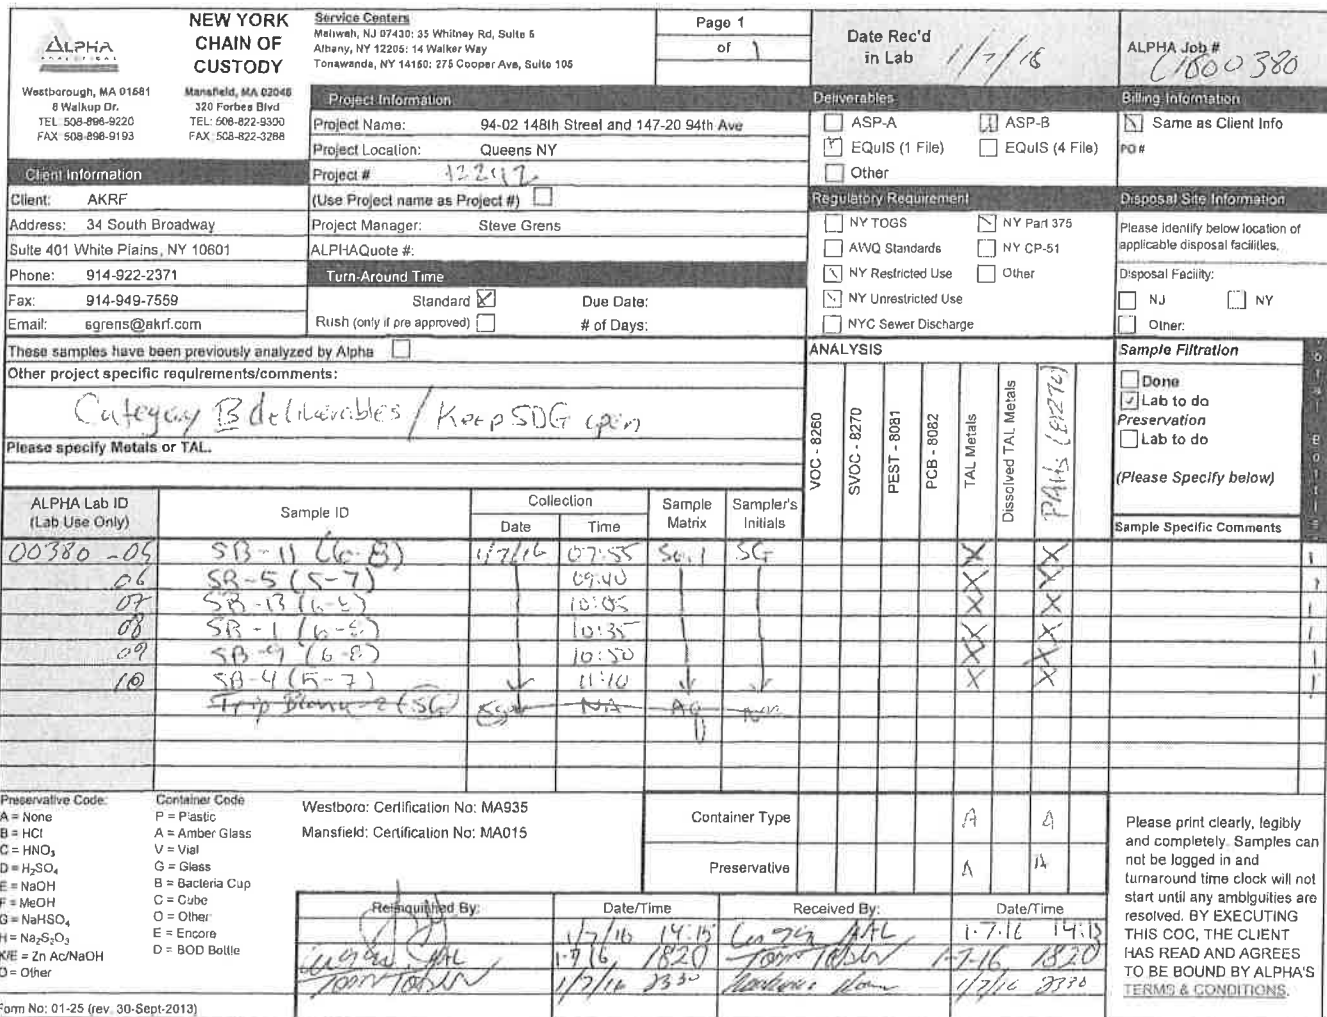 ALPHA
ANALYTICAL
Westborough, MA 01581
8 Walkup Dr.
TEL: 508-898-9220
FAX: 508-898-9193
NEW YORK
CHAIN OF
CUSTODY
Mansfield, MA 02048
320 Forbes Blvd
TEL: 508-822-9300
FAX: 508-822-3288
Service Centers
Mahwah, NJ 07430: 35 Whitney Rd, Suite 5
Albany, NY 12205: 14 Walker Way
Tonawanda, NY 14150: 275 Cooper Ave, Suite 105
Page 1
of 1
Date Rec'd
in Lab 1/7/16
ALPHA Job #
L1600380
Client Information
Client: AKRF
Address: 34 South Broadway
Suite 401 White Plains, NY 10601
Phone: 914-922-2371
Fax: 914-949-7559
Email: sgrens@akrf.com
Project Information
Project Name: 94-02 148th Street and 147-20 94th Ave
Project Location: Queens NY
Project # 12242
(Use Project name as Project #)
Project Manager: Steve Grens
ALPHAQuote #:
Turn-Around Time
Standard X Due Date:
Rush (only if pre approved) # of Days:
Deliverables
ASP-A ASP-B
EQuIS (1 File) EQuIS (4 File)
Other
Regulatory Requirement
NY TOGS NY Part 375
AWQ Standards NY CP-51
NY Restricted Use Other
NY Unrestricted Use
NYC Sewer Discharge
Billing Information
Same as Client Info
PO #
Disposal Site Information
Please identify below location of
applicable disposal facilities.
Disposal Facility:
NJ NY
Other:
These samples have been previously analyzed by Alpha
Other project specific requirements/comments:
Category B deliverables / Keep SDG open
Please specify Metals or TAL.
ANALYSIS
VOC - 8260
SVOC - 8270
PEST - 8081
PCB - 8082
TAL Metals
Dissolved TAL Metals
PAHs (8270)
Sample Filtration
Done
Lab to do
Preservation
Lab to do
(Please Specify below)
Sample Specific Comments
ALPHA Lab ID
(Lab Use Only)
Sample ID
Collection
Date Time
Sample
Matrix
Sampler's
Initials
00380 -05 SB-11 (6-8) 1/7/16 07:55 Soil SG X X 1
06 SB-5 (5-7) 09:40 X X 1
07 SB-13 (6-8) 10:05 X X 1
08 SB-1 (6-8) 10:35 X X 1
09 SB-9 (6-8) 10:50 X X 1
10 SB-4 (5-7) 11:10 X X 1
Trip Blank-2 (SG) NA AQ
Preservative Code:
A = None
B = HCl
C = HNO₃
D = H₂SO₄
E = NaOH
F = MeOH
G = NaHSO₄
H = Na₂S₂O₃
K/E = Zn Ac/NaOH
O = Other
Container Code
P = Plastic
A = Amber Glass
V = Vial
G = Glass
B = Bacteria Cup
C = Cube
O = Other
E = Encore
D = BOD Bottle
Westboro: Certification No: MA935
Mansfield: Certification No: MA015
Container Type A A
Preservative A A
Relinquished By: Date/Time Received By: Date/Time
1/7/16 14:15 AAL 1-7-16 14:15
AAL 1-7-16 1820 Tom Tobin 1-7-16 1820
Tom Tobin 1/7/16 2330 1/7/16 2330
Please print clearly, legibly
and completely. Samples can
not be logged in and
turnaround time clock will not
start until any ambiguities are
resolved. BY EXECUTING
THIS COC, THE CLIENT
HAS READ AND AGREES
TO BE BOUND BY ALPHA'S
TERMS & CONDITIONS.
Form No: 01-25 (rev. 30-Sept-2013)